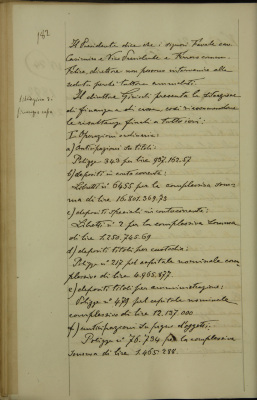 182.
Il Presidente dice che i signori Favale cav.
Casimiro e Vice Presidente e
direttore non possono intervenire alla
seduta perchè tuttora ammalati.
Situazione di
finanza
Il direttore presenta la situazione
di finanza
le risultanze finali a tutto ieri:
In Operazioni ordinarie:
a) Anticipazioni su titoli:
Polizze 342 per lire 957.162.57
b) depositi in conto corrente:
Libretti n° 6455 per la complessiva som-
ma di lire 16.801.369.73
c) depositi speciali in conto corrente:
Libretti n° 2 per la complessiva somma
di lire 1.250.745.69
d) depositi titoli per custodia:
Polizze n° 217 pel capitale nominale com-
plessivo di lire 4.965.877.
e) depositi titoli per amministrazione:
Polizze n° 479 pel capitale nominale
complessivo di lire 12.127.000
f) anticipazioni su pegno d'oggetti:
Polizze n° 76.734 per la complessiva
somma di lire 1.465.288